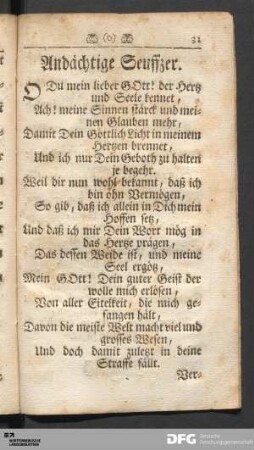 32
Andächtige Seuffzer.
O Du mein lieber GOtt! der Hertz
und Seele kennet,
Ach! meine Sinnen stärck und mei-
nen Glauben mehr,
Damit Dein Göttlich Licht in meinem
Hertzen brennet,
Und ich nur Dein Geboth zu halten
je begehr.
Weil dir nun wohl bekannt, daß ich
bin ohn Vermögen,
So gib, daß ich allein in Dich mein
Hoffen setz,
Und daß ich mir Dein Wort mög in
das Hertze prägen,
Das dessen Weide ist, und meine
Seel ergötz,
Mein GOtt! Dein guter Geist der
wolle mich erlösen,
Von aller Eitelkeit, die mich ge-
fangen hält,
Davon die meiste Welt macht viel und
grosses Wesen,
Und doch damit zuletzt in deine
Straffe fällt.
Ver-
DFG
Deutsche
Forschungsgemeinschaft